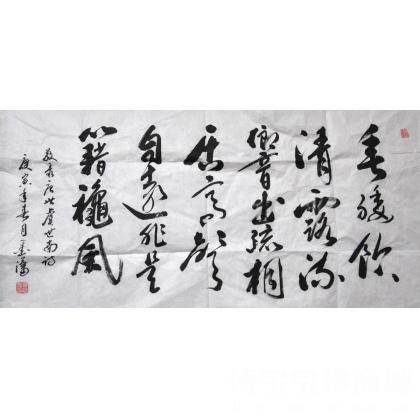 垂緌飲
清露流
響出疏桐
居高聲
自遠非是
籍穐風
唐 虞世南詩
庚寅年春月